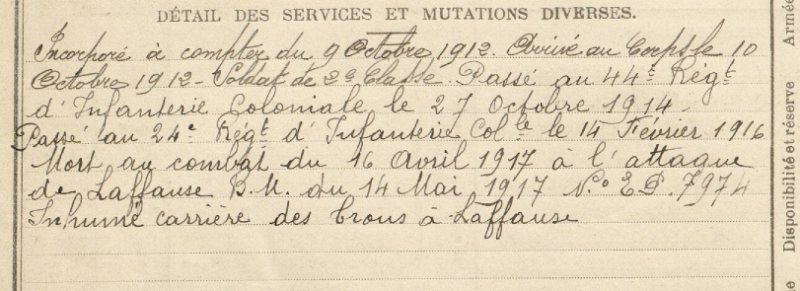 DÉTAIL DES SERVICES ET MUTATIONS DIVERSES.
Incorporé à compter du 9 Octobre 1912. Arrivé au Corps le 10
Octobre 1912 - Soldat de 2e Classe. Passé au 44e Régt
d'Infanterie Coloniale le 27 Octobre 1914 -
Passé au 24e Régt d'Infanterie Colle le 14 Février 1916
Mort au combat du 16 Avril 1917 à l'attaque
de Laffause D.M. du 14 Mai 1917 No ED. 7974
Inhumé carrière des à Laffause
Disponibilité et réserve
Armée